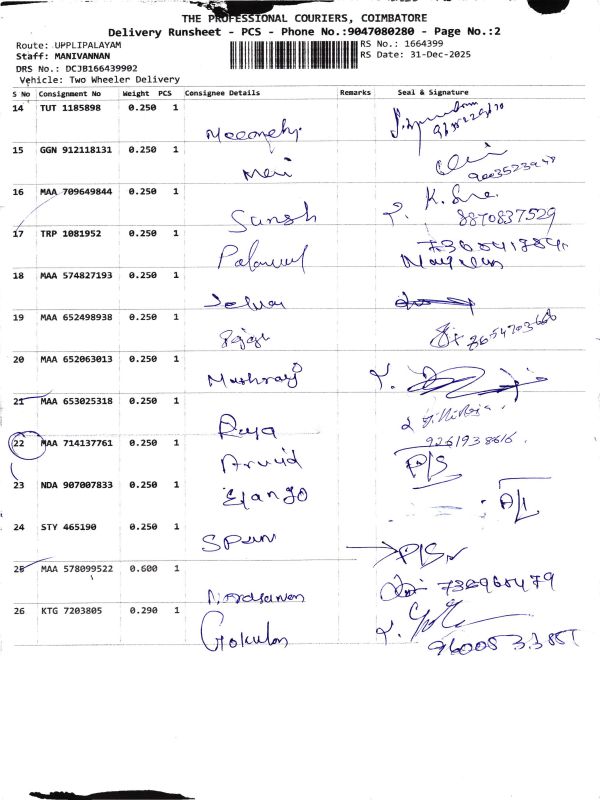 THE PROFESSIONAL COURIERS, COIMBATORE
Delivery Runsheet - PCS - Phone No.:9047080280 - Page No.:2
Route: UPPLIPALAYAM
Staff: MANIVANNAN
DRS No.: DCJB166439902
Vehicle: Two Wheeler Delivery
RS No.: 1664399
RS Date: 31-Dec-2025
S No Consignment No Weight PCS Consignee Details Remarks Seal & Signature
14 TUT 1185898 0.250 1
15 GGN 912118131 0.250 1
Mani
16 MAA 709649844 0.250 1
Sangsh K. Sre.
8870837529
17 TRP 1081952 0.250 1
18 MAA 574827193 0.250 1
Selva
19 MAA 652498938 0.250 1
20 MAA 652063013 0.250 1
Muthuraj
21 MAA 653025318 0.250 1
Raya
9261938616
22 MAA 714137761 0.250 1
Arvind P/S
23 NDA 907007833 0.250 1
Elango A/L
24 STY 465190 0.250 1
P/S
25 MAA 578099522 0.600 1
26 KTG 7203805 0.290 1
Gokulan